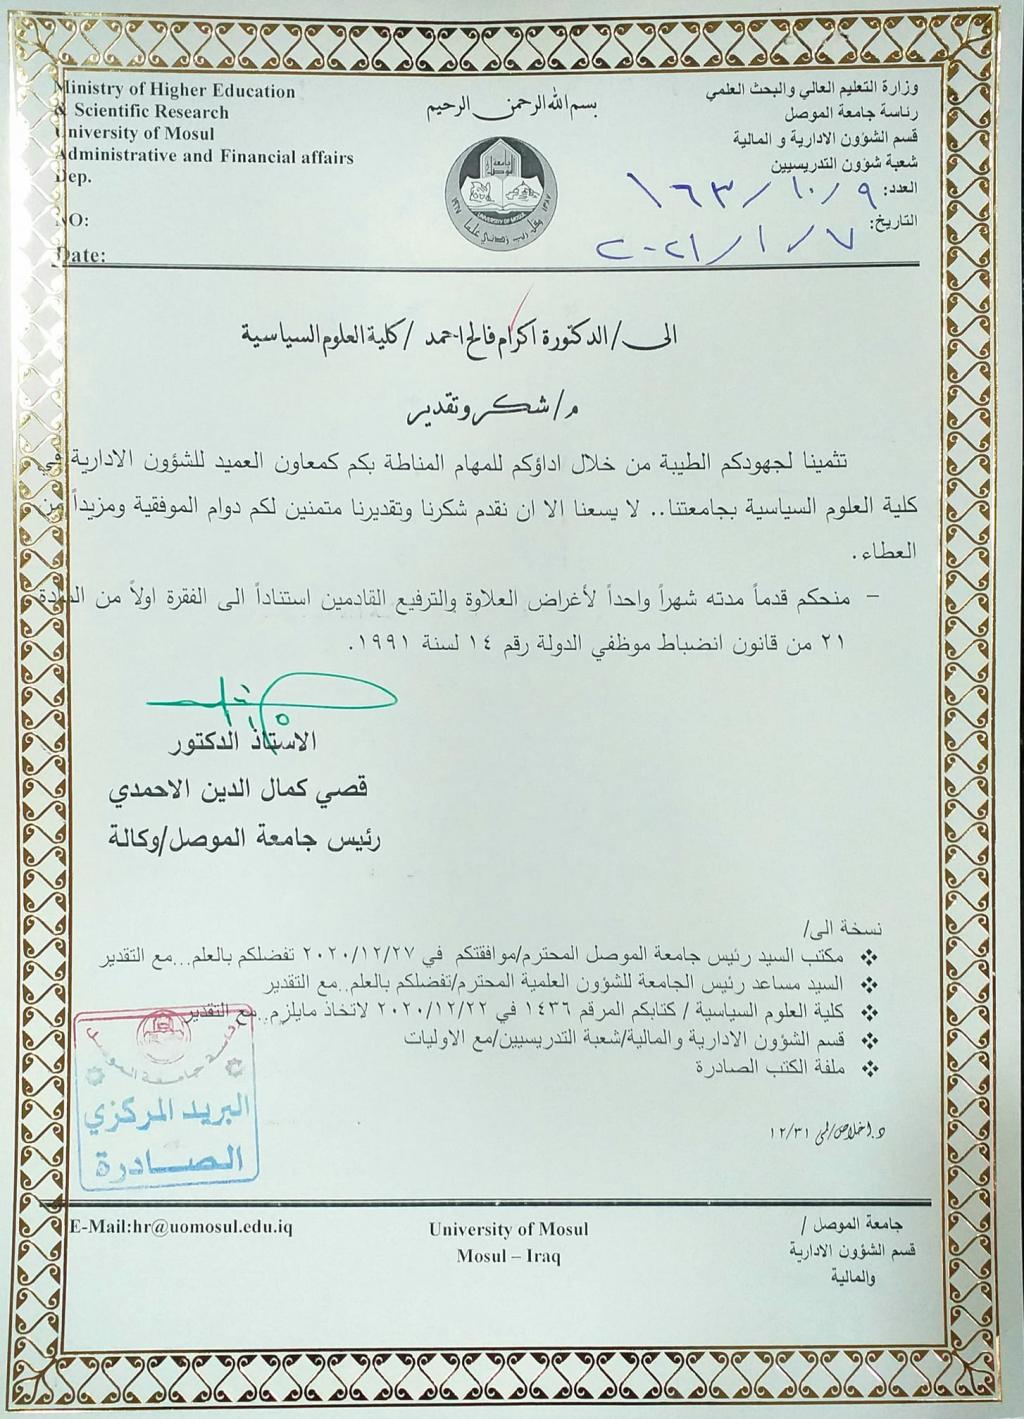 Ministry of Higher Education
& Scientific Research
University of Mosul
Administrative and Financial affairs
Dep.
NO:
Date:
بسم الله الرحمن الرحيم
وزارة التعليم العالي والبحث العلمي
رئاسة جامعة الموصل
قسم الشؤون الادارية و المالية
شعبة شؤون التدريسيين
العدد: ٩/١٠/١٦٣
التاريخ: ٧/١/٢٠٢١
جامعة الموصل
UNIVERSITY OF MOSUL
وقل رب زدني علما
الى/ الدكتورة اكرام فالح احمد /كلية العلوم السياسية
م/ شكر وتقدير
تثمينا لجهودكم الطيبة من خلال اداؤكم للمهام المناطة بكم كمعاون العميد للشؤون الادارية في
كلية العلوم السياسية بجامعتنا.. لا يسعنا الا ان نقدم شكرنا وتقديرنا متمنين لكم دوام الموفقية ومزيداً من
العطاء.
– منحكم قدماً مدته شهراً واحداً لأغراض العلاوة والترفيع القادمين استناداً الى الفقرة اولاً من المادة
٢١ من قانون انضباط موظفي الدولة رقم ١٤ لسنة ١٩٩١.
الاستاذ الدكتور
قصي كمال الدين الاحمدي
رئيس جامعة الموصل/وكالة
نسخة الى/
مكتب السيد رئيس جامعة الموصل المحترم/موافقتكم في ٢٠٢٠/١٢/٢٧ تفضلكم بالعلم...مع التقدير
السيد مساعد رئيس الجامعة للشؤون العلمية المحترم/تفضلكم بالعلم..مع التقدير
كلية العلوم السياسية / كتابكم المرقم ١٤٣٦ في ٢٠٢٠/١٢/٢٢ لاتخاذ مايلزم..مع التقدير
قسم الشؤون الادارية والمالية/شعبة التدريسيين/مع الاوليات
ملفة الكتب الصادرة
رئاسة جامعة الموصل
البريد المركزي
الصادرة
د.اخلاص/لمى ١٢/٣١
E-Mail:hr@uomosul.edu.iq
University of Mosul
Mosul – Iraq
جامعة الموصل /
قسم الشؤون الادارية
والمالية